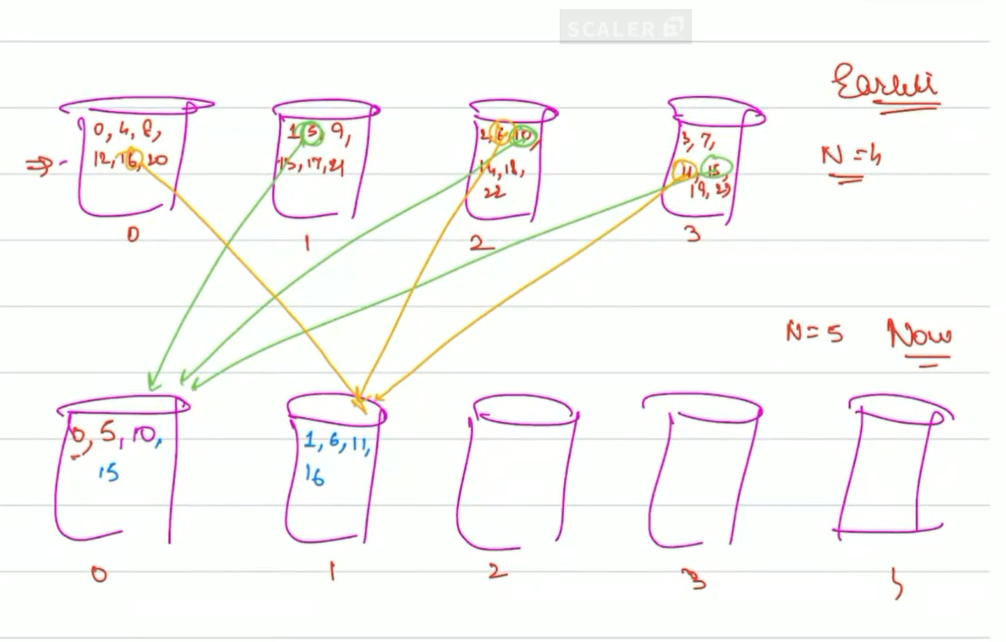 SCALER
Earlier
0, 4, 8,
12, 16, 20
1 5 9,
13, 17, 21
2, 6, 10,
14, 18,
22
3, 7,
11, 15,
19, 23
N = 4
0
1
2
3
N = 5 Now
0, 5, 10,
15
1, 6, 11,
16
0
1
2
3